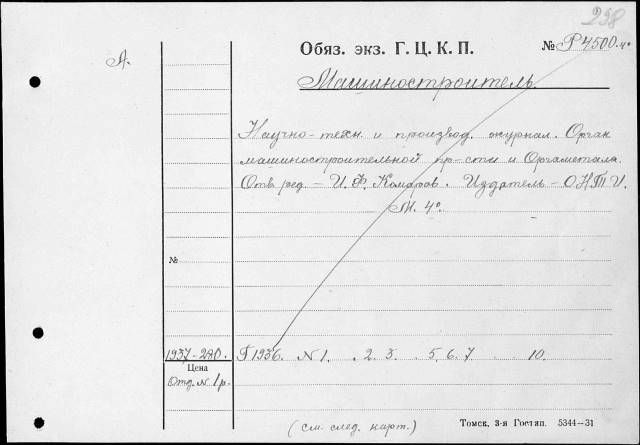 298
А.
Обяз. экз. Г. Ц. К. П. № Р 4500. 4°
Машиностроитель.
Научно-техн. и производ. журнал. Орган
машиностроительной пр-сти и Оргаметала.
Отв. ред. – И. Ф. Комаров. Издатель – О.Н.Т.И.
М. 4°.
№
1937 - 2
Г 1936. N 1. . 2. 3. . 5. 6. 7 . . 10.
Цена
Отд. N 1 р.
(см. след. карт.)
Томск, 3-я Гостип. 5344—31